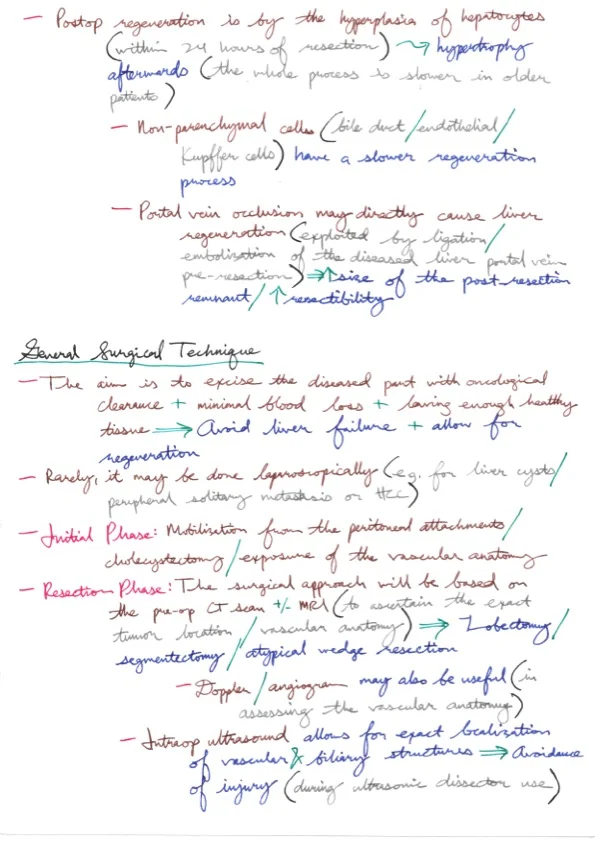 — Postop regeneration is by the hyperplasia of hepatocytes
(within 24 hours of resection) ⤳ hypertrophy
afterwards (the whole process is slower in older
patients)
— Non-parenchymal cells (bile duct/endothelial/
Kupffer cells) have a slower regeneration
process
— Portal vein occlusion may directly cause liver
regeneration (exploited by ligation/
embolization of the diseased liver portal vein
pre-resection) ⇒ ↑ size of the post-resection
remnant/↑ resectibility
General Surgical Technique
— The aim is to excise the diseased part with oncological
clearance + minimal blood loss + leaving enough healthy
tissue ⇒ Avoid liver failure + allow for
regeneration
— Rarely, it may be done laproscopically (e.g. for liver cysts/
peripheral solitary metastasis or HCC)
— Initial Phase: Mobilization from the peritoneal attachments/
cholecystectomy/exposure of the vascular anatomy
— Resection Phase: The surgical approach will be based on
the pre-op CT scan +/- MRI (to ascertain the exact
tumor location/vascular anatomy) ⇒ Lobectomy/
segmentectomy/atypical wedge resection
— Doppler/angiogram may also be useful (in
assessing the vascular anatomy)
— Intraop ultrasound allows for exact localization
of vascular & biliary structures ⇒ Avoidance
of injury (during ultrasonic dissector use)